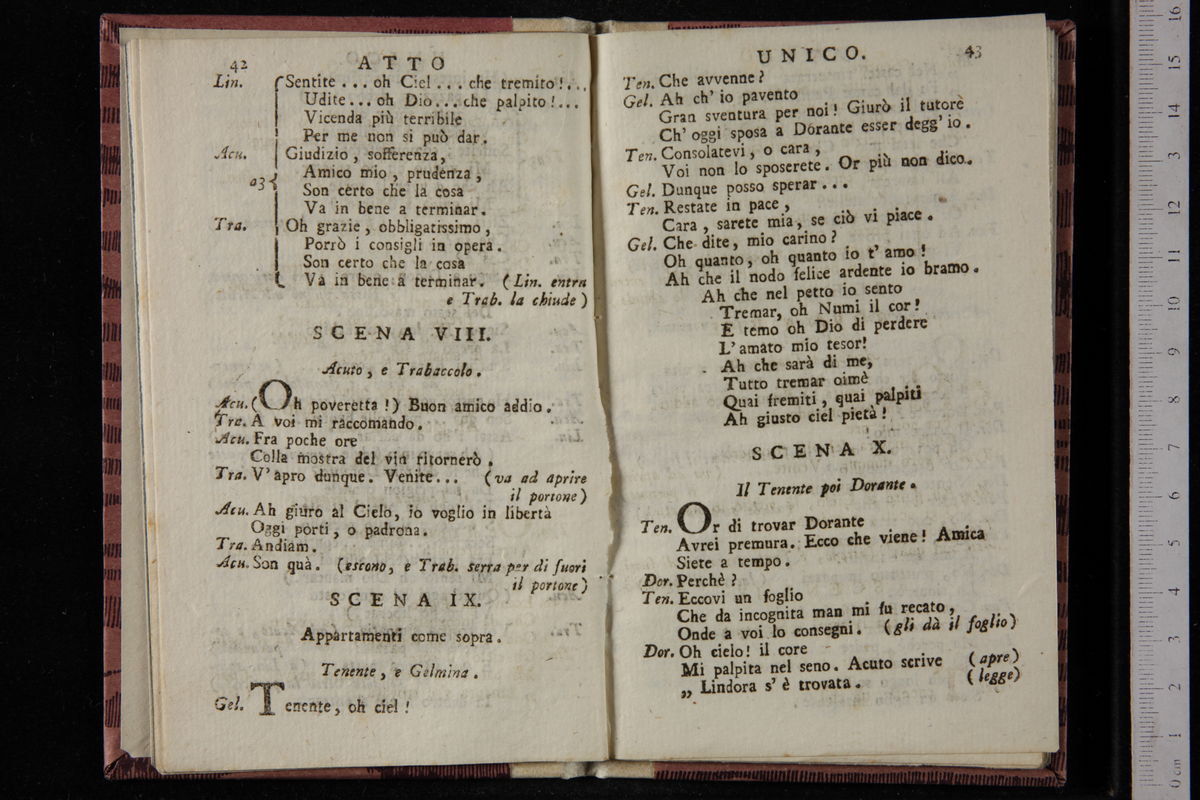 42 ATTO
Lin. Sentite ... oh Ciel ... che tremito! ...
Udite ... oh Dio ... che palpito! ...
Vicenda più terribile
Per me non si può dar.
Acu. Giudizio, sofferenza,
a3 Amico mio, prudenza,
Son certo che la cosa
Va in bene a terminar.
Tra. Oh grazie, obbligatissimo,
Porrò i consigli in opera.
Son certo che la cosa
Va in bene a terminar. (Lin. entra
e Trab. la chiude)
SCENA VIII.
Acuto, e Trabaccolo.
Acu. (Oh poveretta!) Buon amico addio.
Tra. A voi mi raccomando.
Acu. Fra poche ore
Colla mostra del vin ritornerò.
Tra. V'apro dunque. Venite... (va ad aprire
il portone)
Acu. Ah giuro al Cielo, io voglio in libertà
Oggi porti, o padrona.
Tra. Andiam.
Acu. Son quà. (escono, e Trab. serra per di fuori
il portone)
SCENA IX.
Appartamenti come sopra.
Tenente, e Gelmina.
Gel. Tenente, oh ciel!
UNICO. 43
Ten. Che avvenne?
Gel. Ah ch' io pavento
Gran sventura per noi! Giurò il tutore
Ch' oggi sposa a Dorante esser degg' io.
Ten. Consolatevi, o cara,
Voi non lo sposerete. Or più non dico.
Gel. Dunque posso sperar ...
Ten. Restate in pace,
Cara, sarete mia, se ciò vi piace.
Gel. Che dite, mio carino?
Oh quanto, oh quanto io t' amo!
Ah che il nodo felice ardente io bramo.
Ah che nel petto io sento
Tremar, oh Numi il cor!
E temo oh Dio di perdere
L' amato mio tesor!
Ah che sarà di me,
Tutto tremar oimè
Quai fremiti, quai palpiti
Ah giusto ciel pietà!
SCENA X.
Il Tenente poi Dorante.
Ten. Or di trovar Dorante
Avrei premura. Ecco che viene! Amica
Siete a tempo.
Dor. Perchè?
Ten. Eccovi un foglio
Che da incognita man mi fu recato,
Onde a voi lo consegni. (gli dà il foglio)
Dor. Oh cielo! il core
Mi palpita nel seno. Acuto scrive (apre)
„ Lindora s' è trovata. (legge)
16
15
14
3
12
11
10
9
8
7
6
5
4
3
2
1
0 cm